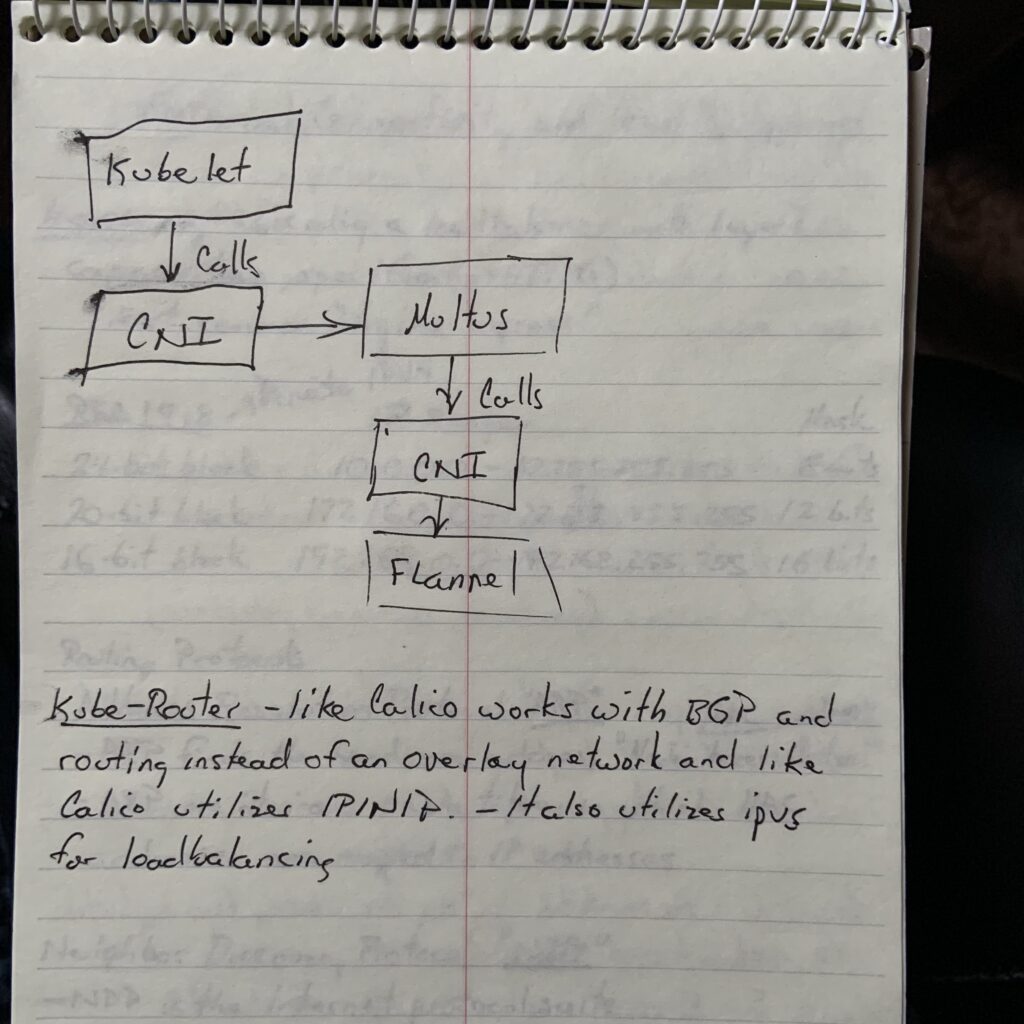 Kubelet
Calls
CNI
Multus
Calls
CNI
Flannel
Kube-Router - like Calico works with BGP and
routing instead of an overlay network and like
Calico utilizes IPINIP. - It also utilizes ipvs
for loadbalancing
Routing Protocols